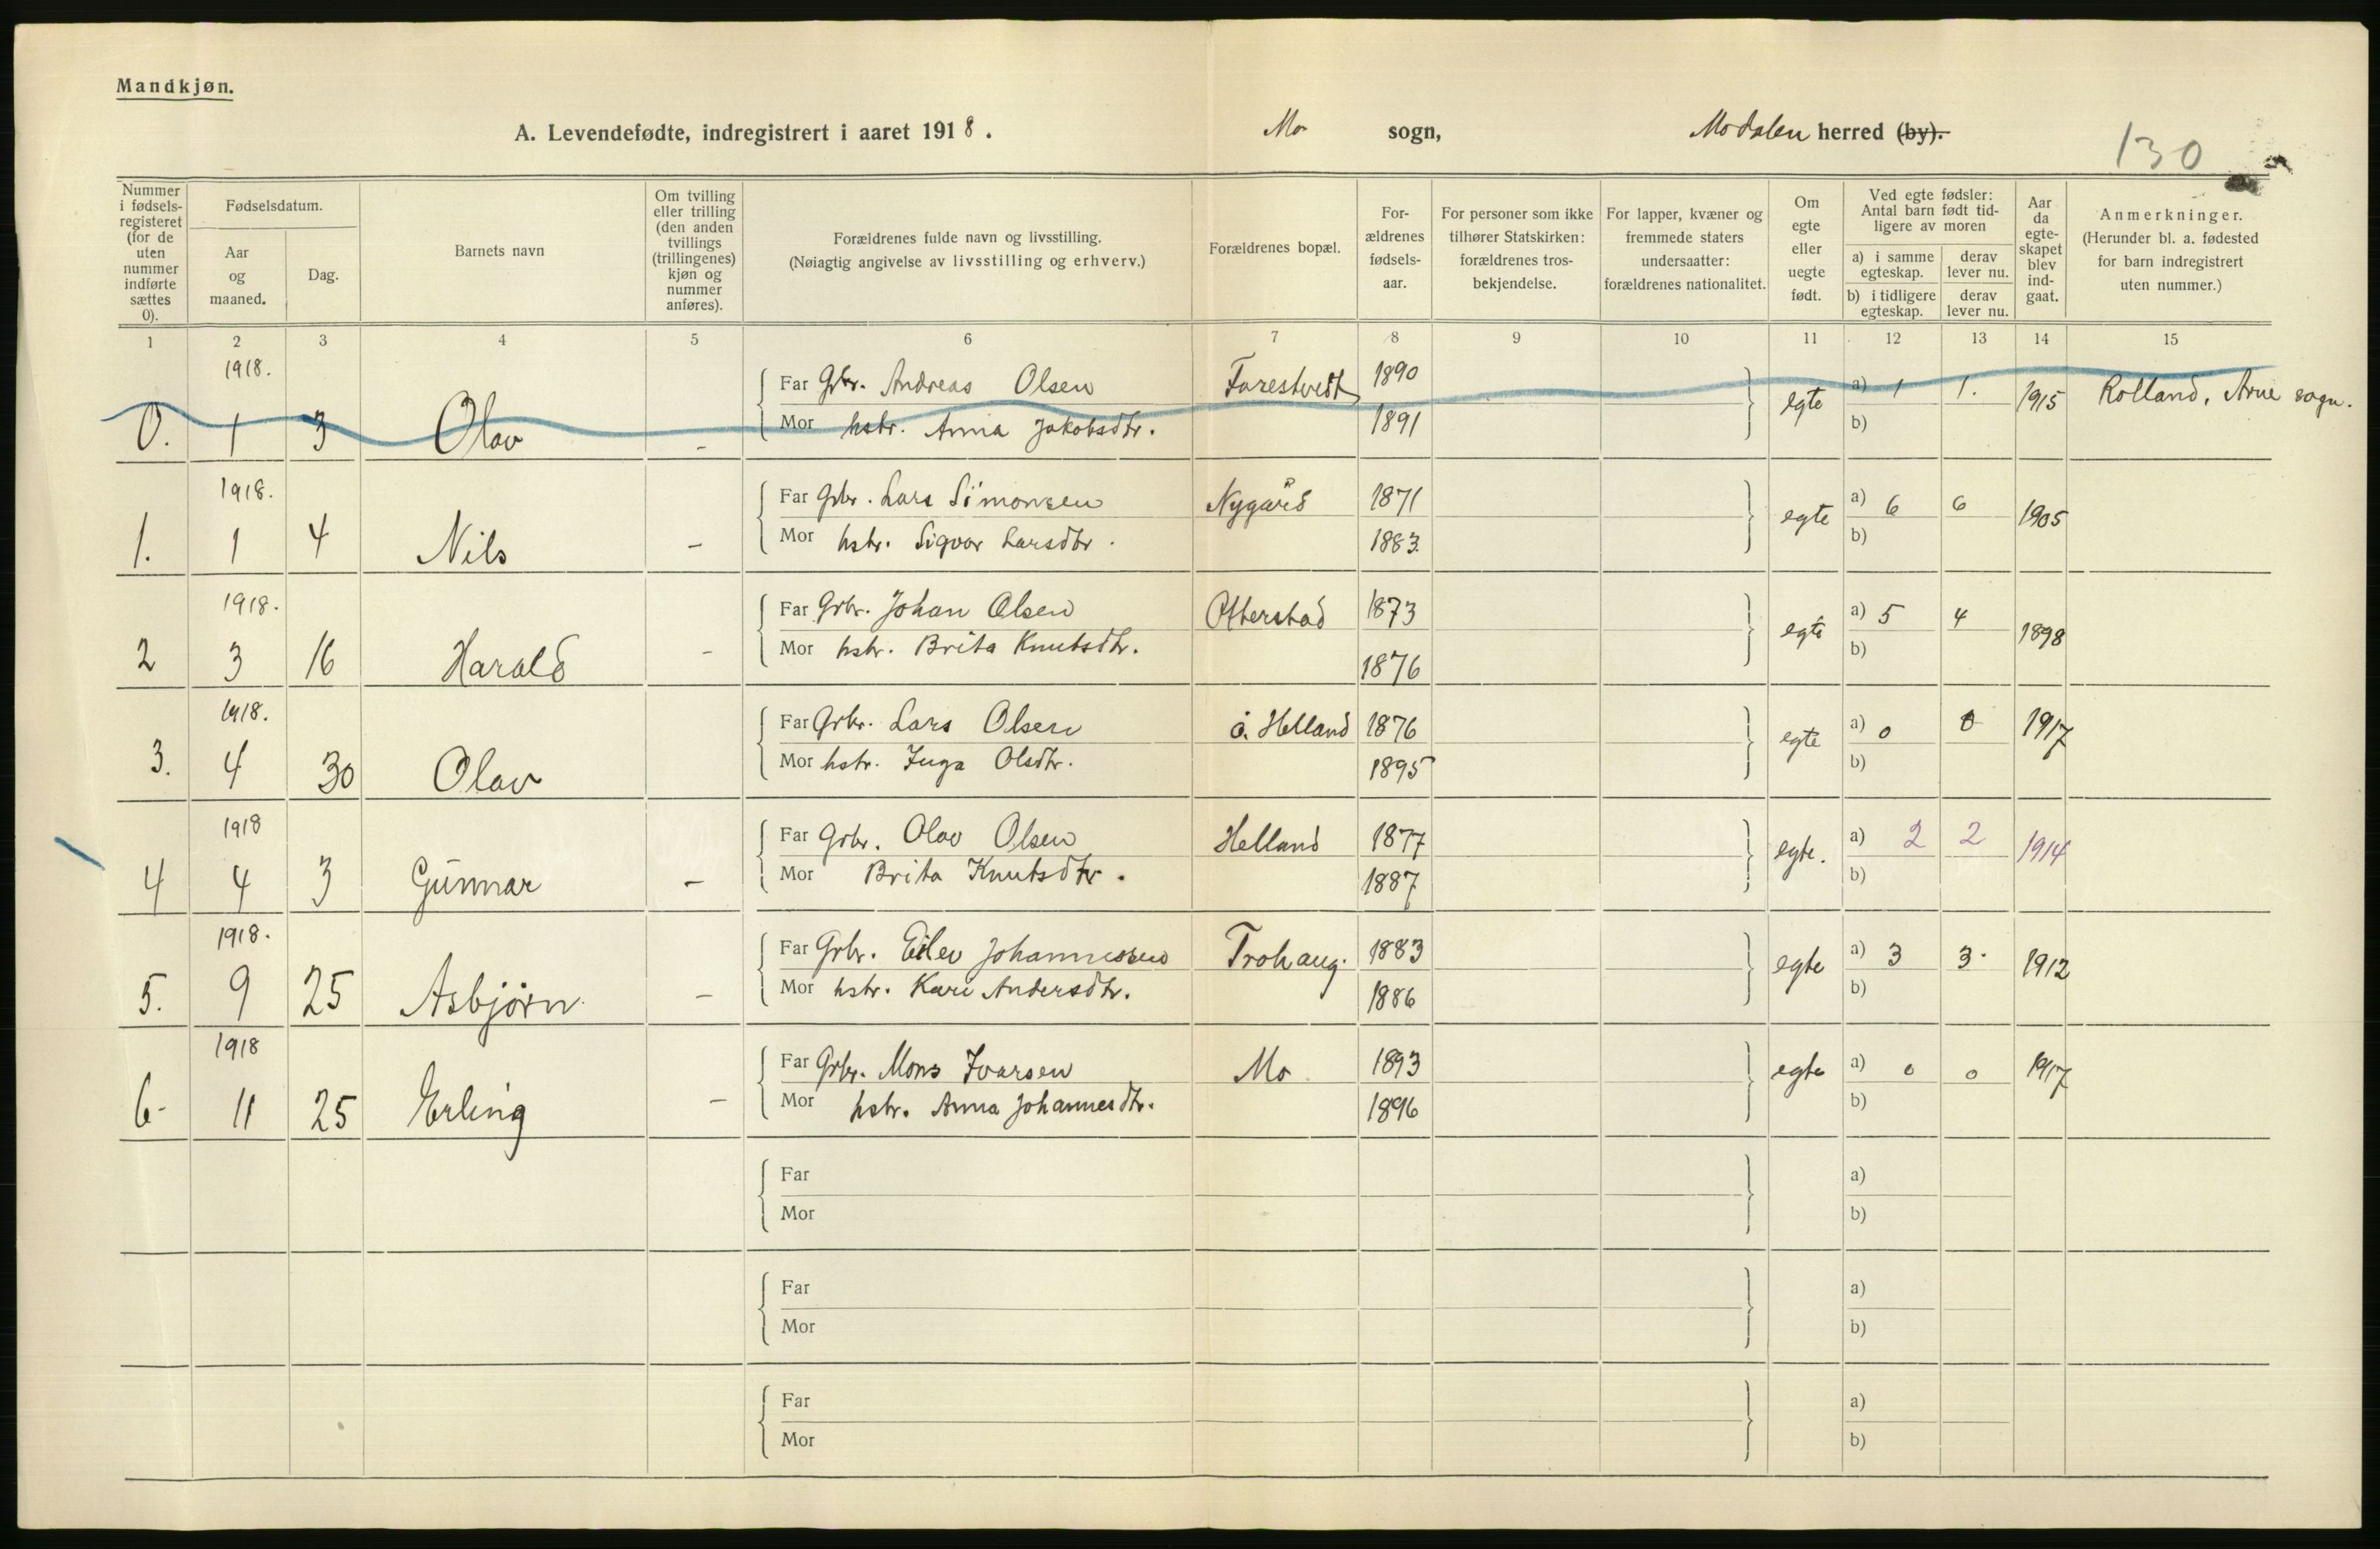 Mandkjøn.
A. Levendefødte, indregistrert i aaret 1918. Mo sogn, Modalen herred (by).
130
Nummer i fødsels-registeret (for de uten nummer indførte sættes 0).
Fødselsdatum.
Aar og maaned.
Dag.
Barnets navn
Om tvilling eller trilling (den anden tvillings (trillingenes) kjøn og nummer anføres).
Forældrenes fulde navn og livsstilling.
(Nøiagtig angivelse av livsstilling og erhverv.)
Forældrenes bopæl.
For-ældrenes fødsels-aar.
For personer som ikke tilhører Statskirken: forældrenes tros-bekjendelse.
For lapper, kvæner og fremmede staters undersaatter: forældrenes nationalitet.
Om egte eller uegte født.
Ved egte fødsler: Antal barn født tid-ligere av moren
a) i samme egteskap.
derav lever nu.
b) i tidligere egteskap.
derav lever nu.
Aar da egte-skapet blev ind-gaat.
Anmerkninger.
(Herunder bl. a. fødested for barn indregistrert uten nummer.)
1 2 3 4 5 6 7 8 9 10 11 12 13 14 15
1918.
Far Gbr. Andreas Olsen Farestveit 1890 a) 1 1.
0. 1 3 Olav - Mor hstr. Anna Jakobsdtr. 1891 egte b) 1915 Rolland, Arne sogn.
1918.
Far Gbr. Lars Simonsen Nygård 1871 a) 6 6
1. 1 4 Nils - Mor hstr. Sigvor Larsdtr. 1883 egte b) 1905
1918.
Far Grbr. Johan Olsen Otterstad 1873 a) 5 4
2 3 16 Harald - Mor hstr. Brita Knutsdtr. 1876 egte b) 1898
1918.
Far Grbr. Lars Olsen ö. Helland 1876 a) 0 0
3. 4 30 Olav Mor hstr. Inga Olsdtr. 1895 egte b) 1917
1918
Far Grbr. Olav Olsen Helland 1877 a) 2 2
4 4 3 Gunnar - Mor Brita Knutsdtr. 1887 egte. b) 1914
1918.
Far Grbr. Eilev Johannessen Trohaug. 1883 a) 3 3.
5. 9 25 Asbjörn - Mor hstr. Kari Andersdtr. 1886 egte b) 1912
1918
Far Grbr. Mons Ivarsen Mo 1893 a) 0 0
6- 11 25 Erling - Mor hstr. Anna Johannesdtr. 1896 egte b) 1917
Far a)
Mor b)
Far a)
Mor b)
Far a)
Mor b)